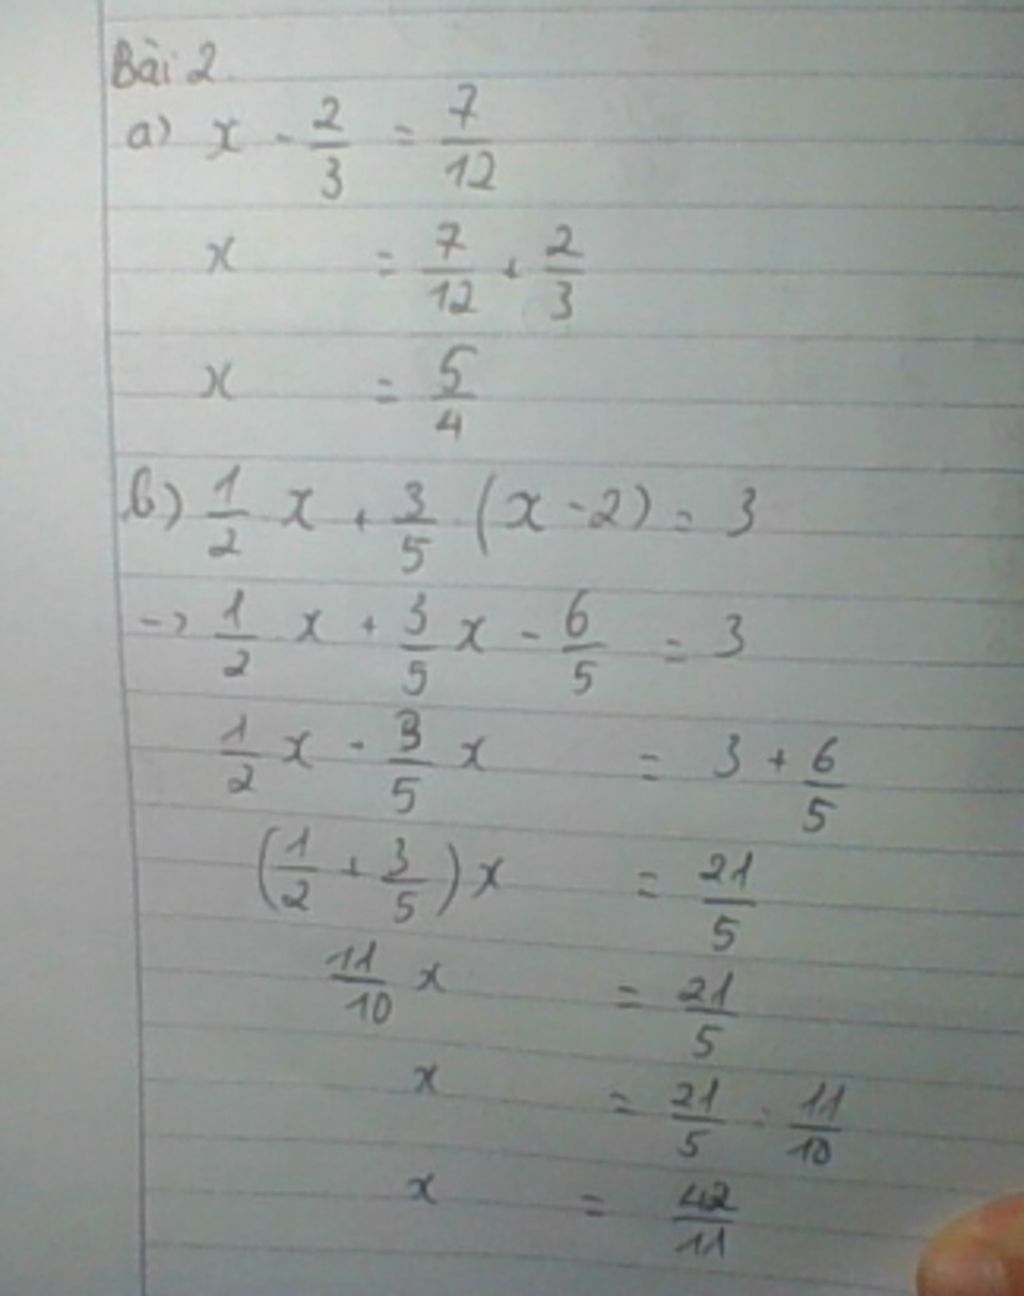 Bài 2
a) x - 2/3 = 7/12
x = 7/12 + 2/3
x = 5/4
b) 1/2 x + 3/5 (x - 2) = 3
-> 1/2 x + 3/5 x - 6/5 = 3
1/2 x - 3/5 x = 3 + 6/5
(1/2 + 3/5) x = 21/5
11/10 x = 21/5
x = 21/5 : 11/10
x = 42/11